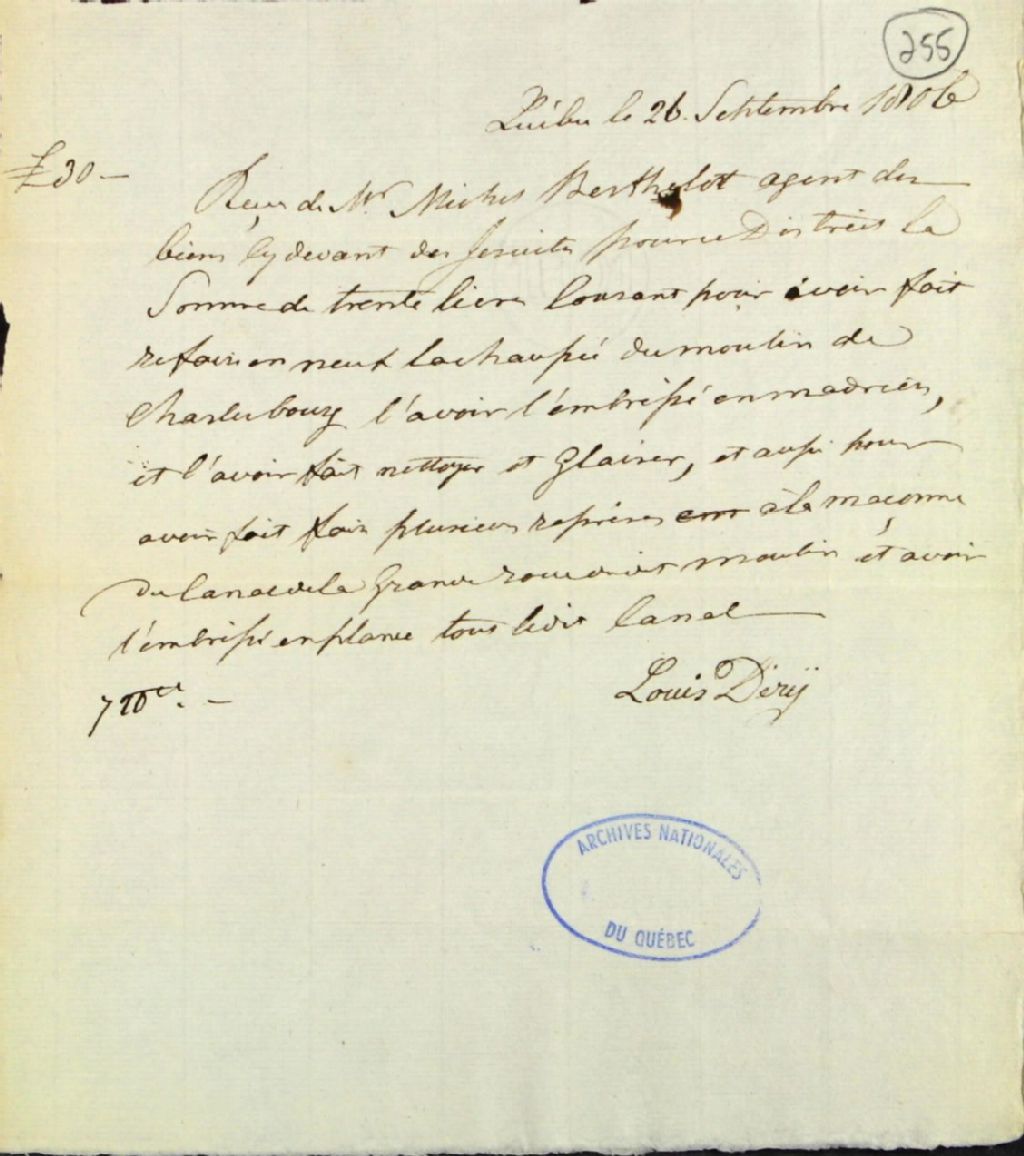 255
Québec le 26. Septembre 1806
£30 —
Reçus de Mr. Michel Berthelot agent des
biens cy devant des Jesuites pour ce District la
Somme de trente livres Courant pour avoir fait
refaire en neuf la chaussé du moulin de
Charlesbourg l'avoir l'embrissé en madriers,
et l'avoir fait nettoyer et Glaiser, et aussi pour
avoir fait faire plusieurs à la maçonne
du Canal de la Grande roue du dit moulin et avoir
l'embrissé en plance tous ledit Canal
Louis Déry
ARCHIVES NATIONALES
DU QUÉBEC